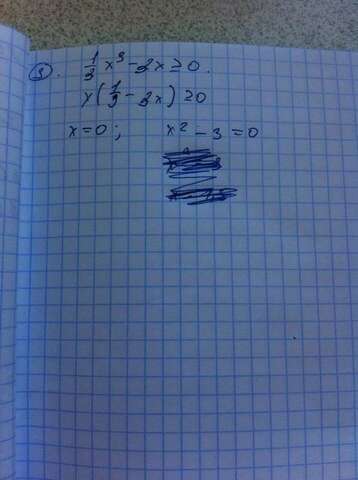 3. 1/3 x³ - 2x ≥ 0.
x(1/3 - 2x) ≥ 0
x = 0; x² - 3 = 0